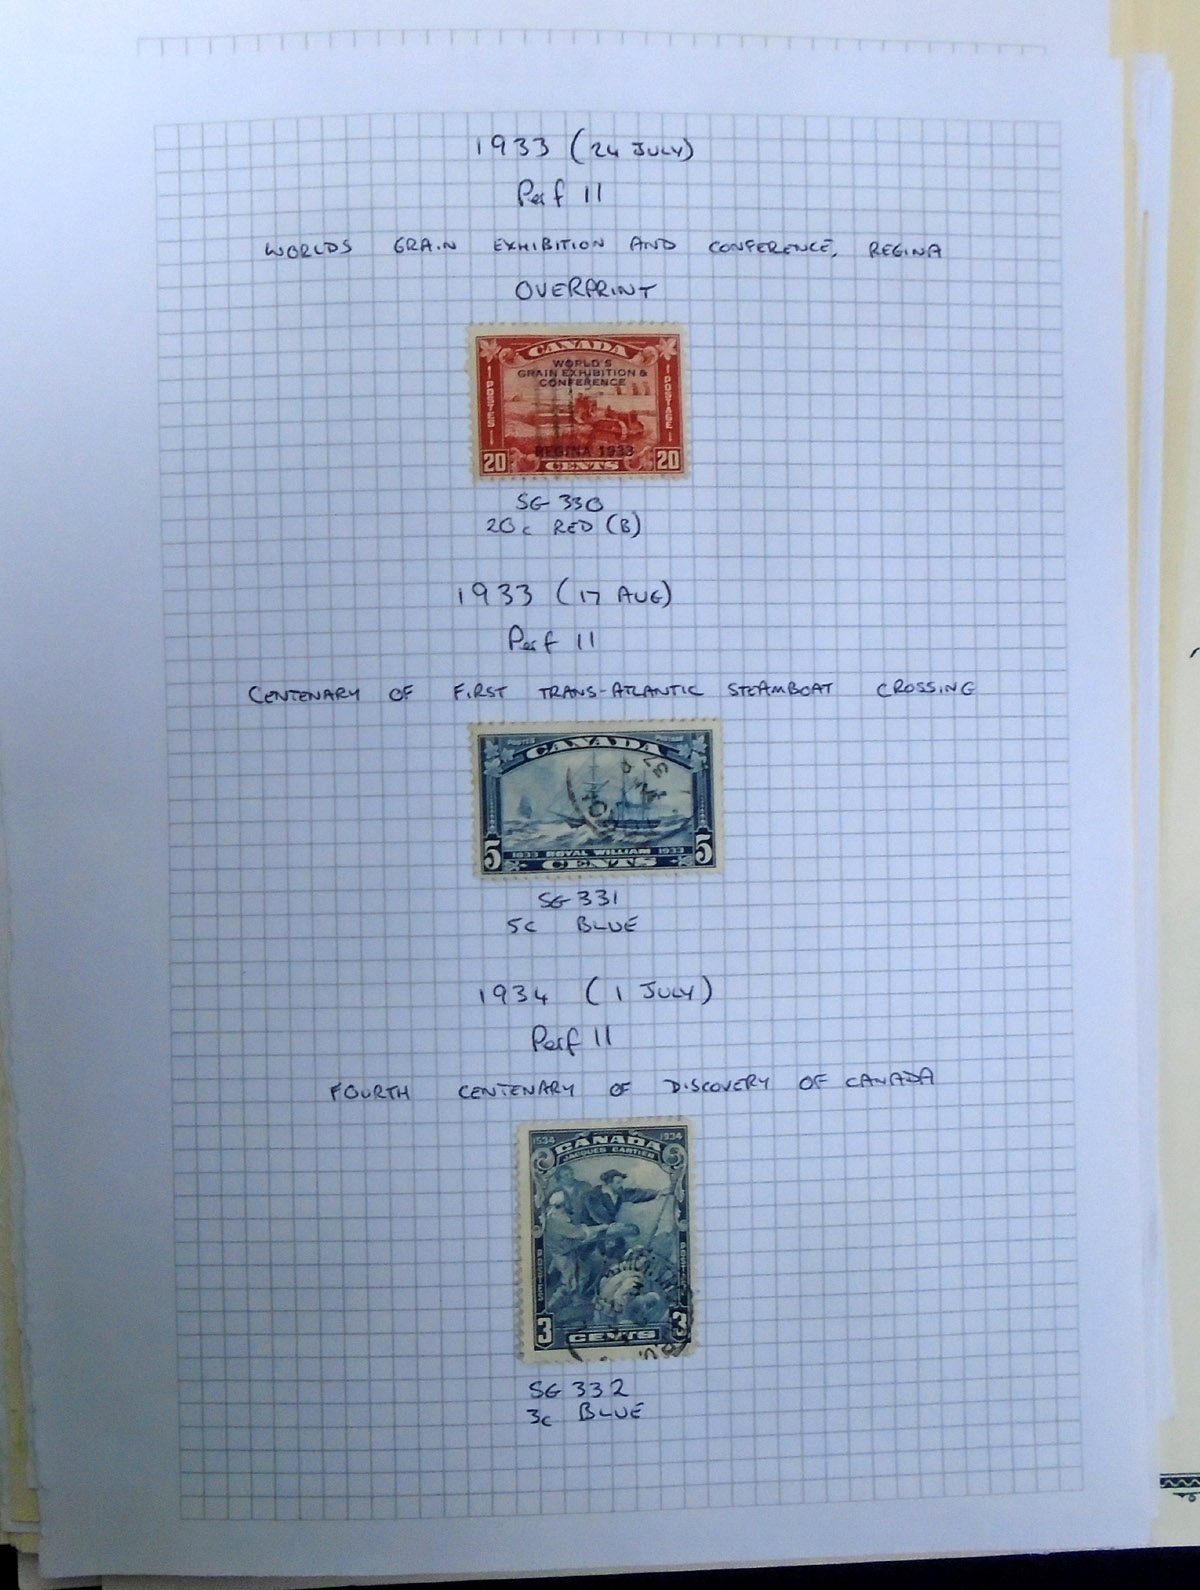 1933 (24 JULY)
Perf 11
WORLDS GRAIN EXHIBITION AND CONFERENCE, REGINA
OVERPRINT
CANADA
WORLD'S
GRAIN EXHIBITION &
CONFERENCE
POSTES
POSTAGE
REGINA 1933
20 CENTS 20
SG 330
20c RED (B)
1933 (17 AUG)
Perf 11
CENTENARY OF FIRST TRANS-ATLANTIC STEAMBOAT CROSSING
POSTES POSTAGE
CANADA
37
1833 ROYAL WILLIAM 1933
5 CENTS 5
SG 331
5c BLUE
1934 (1 JULY)
Perf 11
FOURTH CENTENARY OF DISCOVERY OF CANADA
1534 CANADA 1934
JACQUES CARTIER
3 CENTS 3
SG 332
3c BLUE